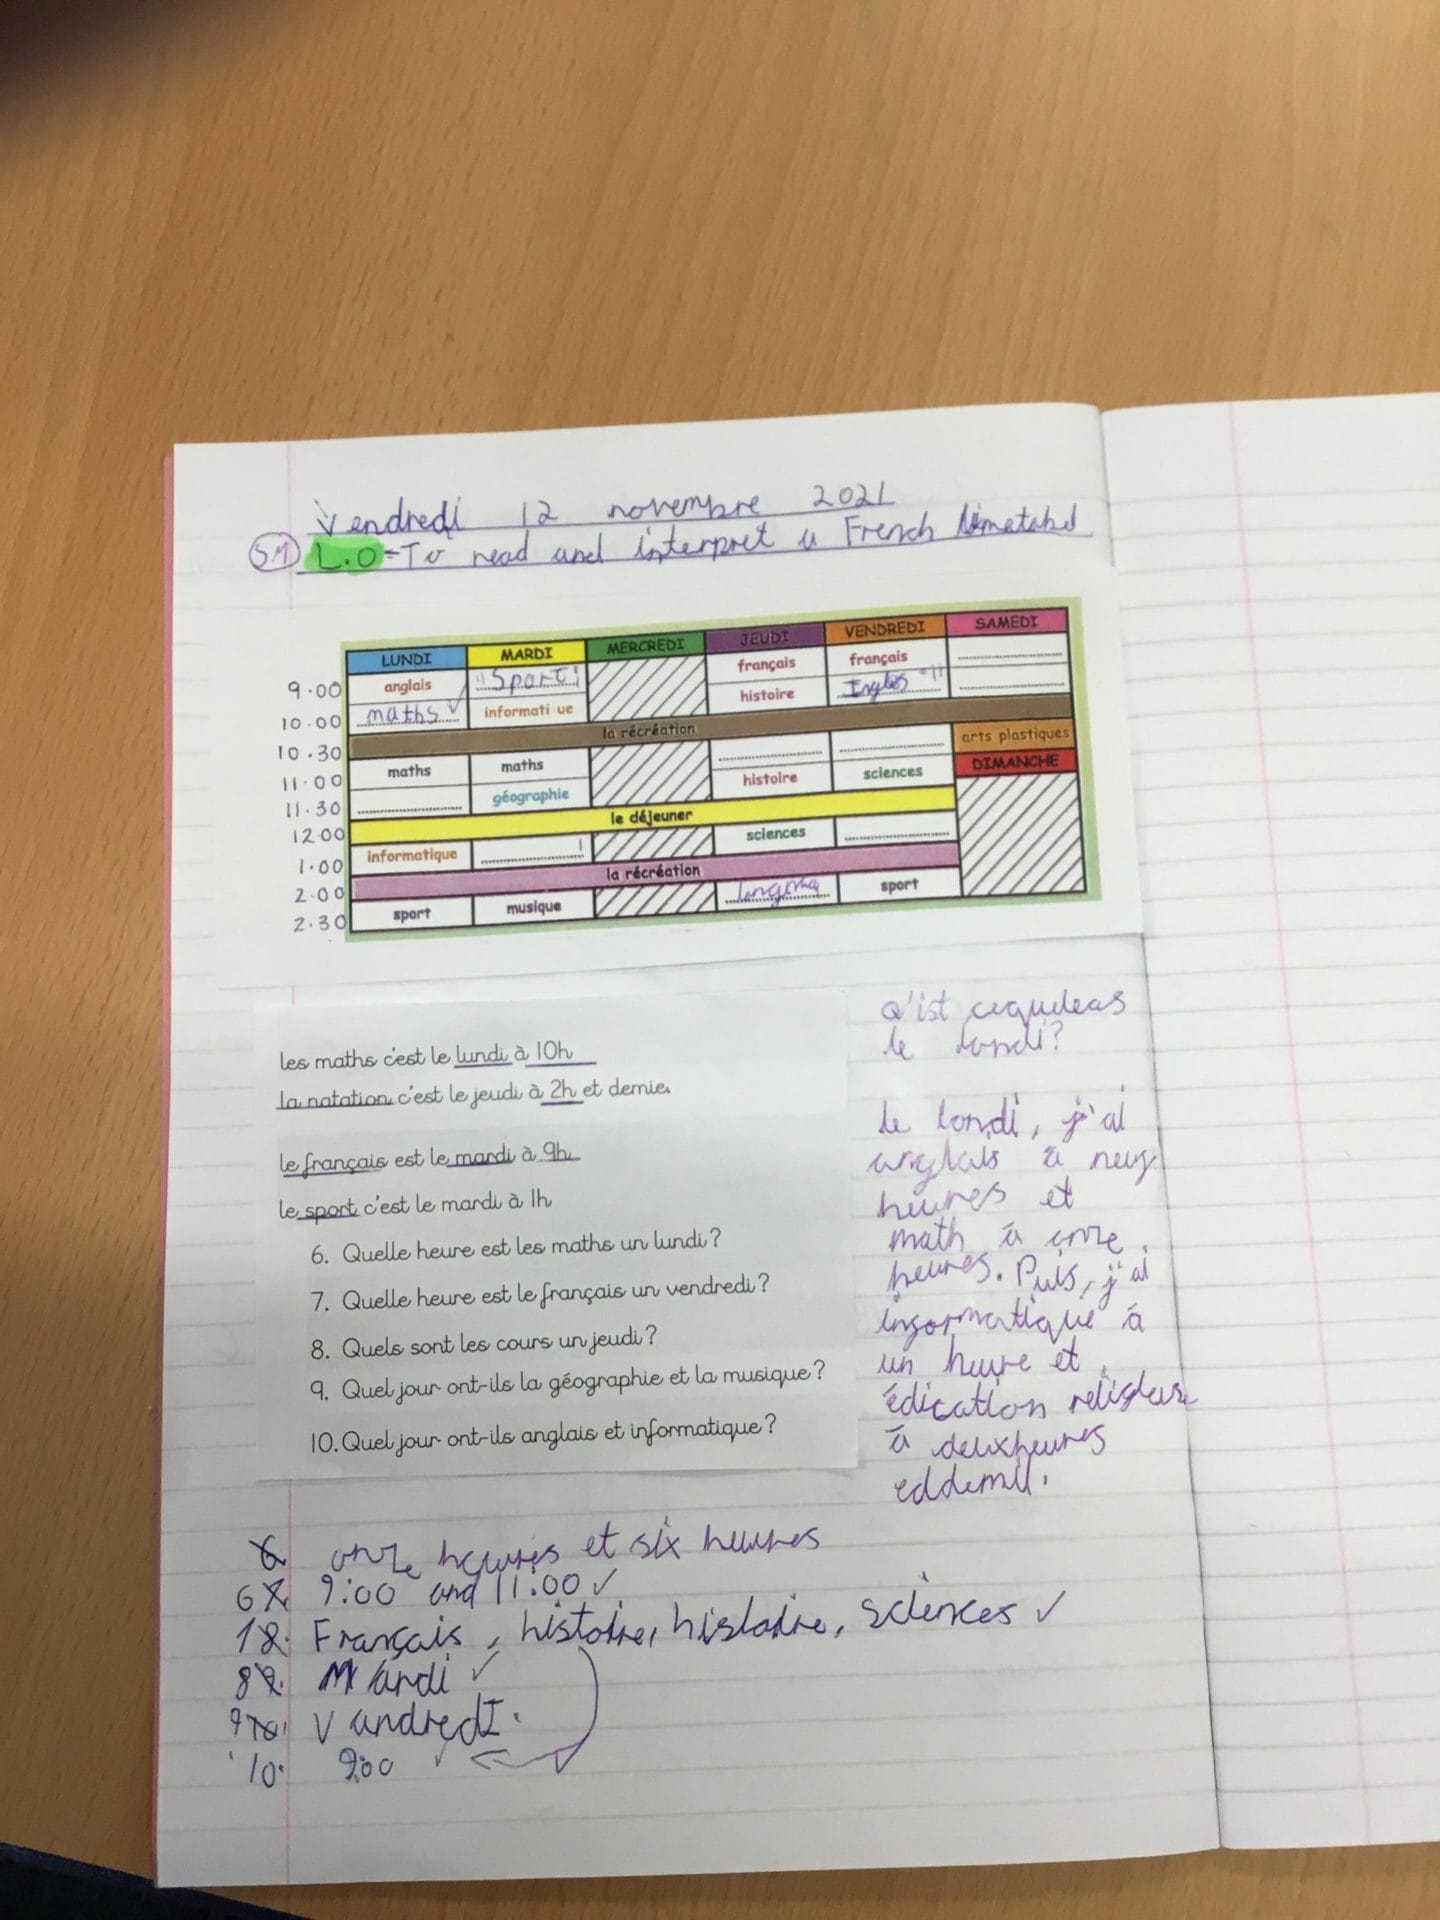 Vendredi 12 novembre 2021
SM L.O-To read and interpret a French
LUNDI MARDI MERCREDI JEUDI VENDREDI SAMEDI
9.00 anglais "Sport" français français
10.00 maths informati ue histoire Ingles "11
10.30 la récréation
11.00 maths maths arts plastiques
11.30 géographie histoire sciences DIMANCHE
12.00 le déjeuner
1.00 informatique sciences
2.00 la récréation
2.30 sport musique sport
les maths c'est le lundi à 10h
la natation c'est le jeudi à 2h et demie.
le français est le mardi à 9h
le sport c'est le mardi à 1h
6. Quelle heure est les maths un lundi?
7. Quelle heure est le français un vendredi?
8. Quels sont les cours un jeudi?
9. Quel jour ont-ils la géographie et la musique?
10. Quel jour ont-ils anglais et informatique?
Q'ist
le londi?
le londi, j'ai
anglais à neuf
heures et
math à onze
heures. Puis, j'ai
informatique à
un heure et
édication
à deuxheures
eddemil.
6 onze heures et six heures
6 7. 9:00 and 11:00 ✓
8. Français, histoire, histoire, sciences ✓
8 9. Mardi ✓
9 10. VandredI.
10. 9:00 ✓